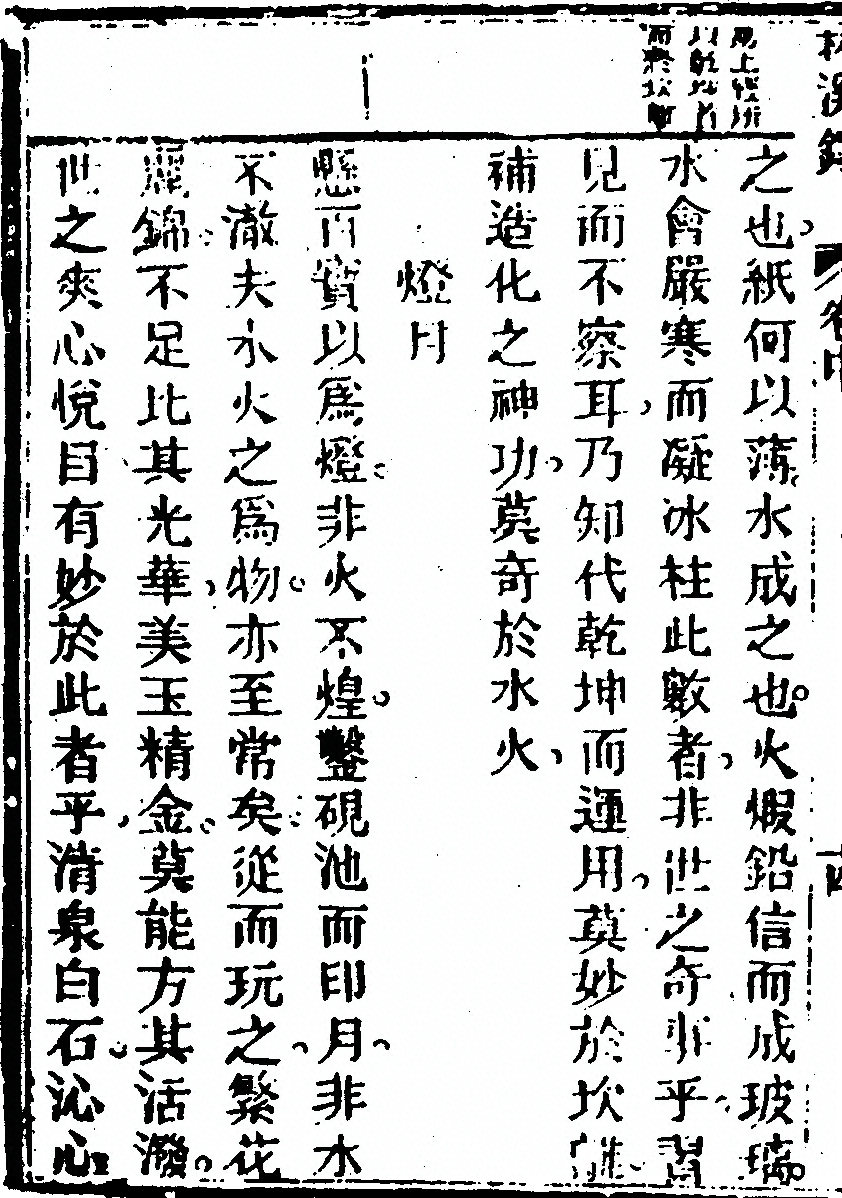 之也紙何以薄水成之也火煅鉛信而成玻璃
水會嚴寒而凝冰柱此數者非世之奇事乎習
見而不察耳乃知代乾坤而運用莫妙於坎離
補造化之神功莫奇於水火
燈月
懸百寶以爲燈非火不煌鑿硯池而印月非水
不澈夫水火之爲物亦至常矣從而玩之繁花
麗錦不足比其光華美玉精金莫能方其活潑
世之爽心悅目有妙於此者乎清泉白石沁心